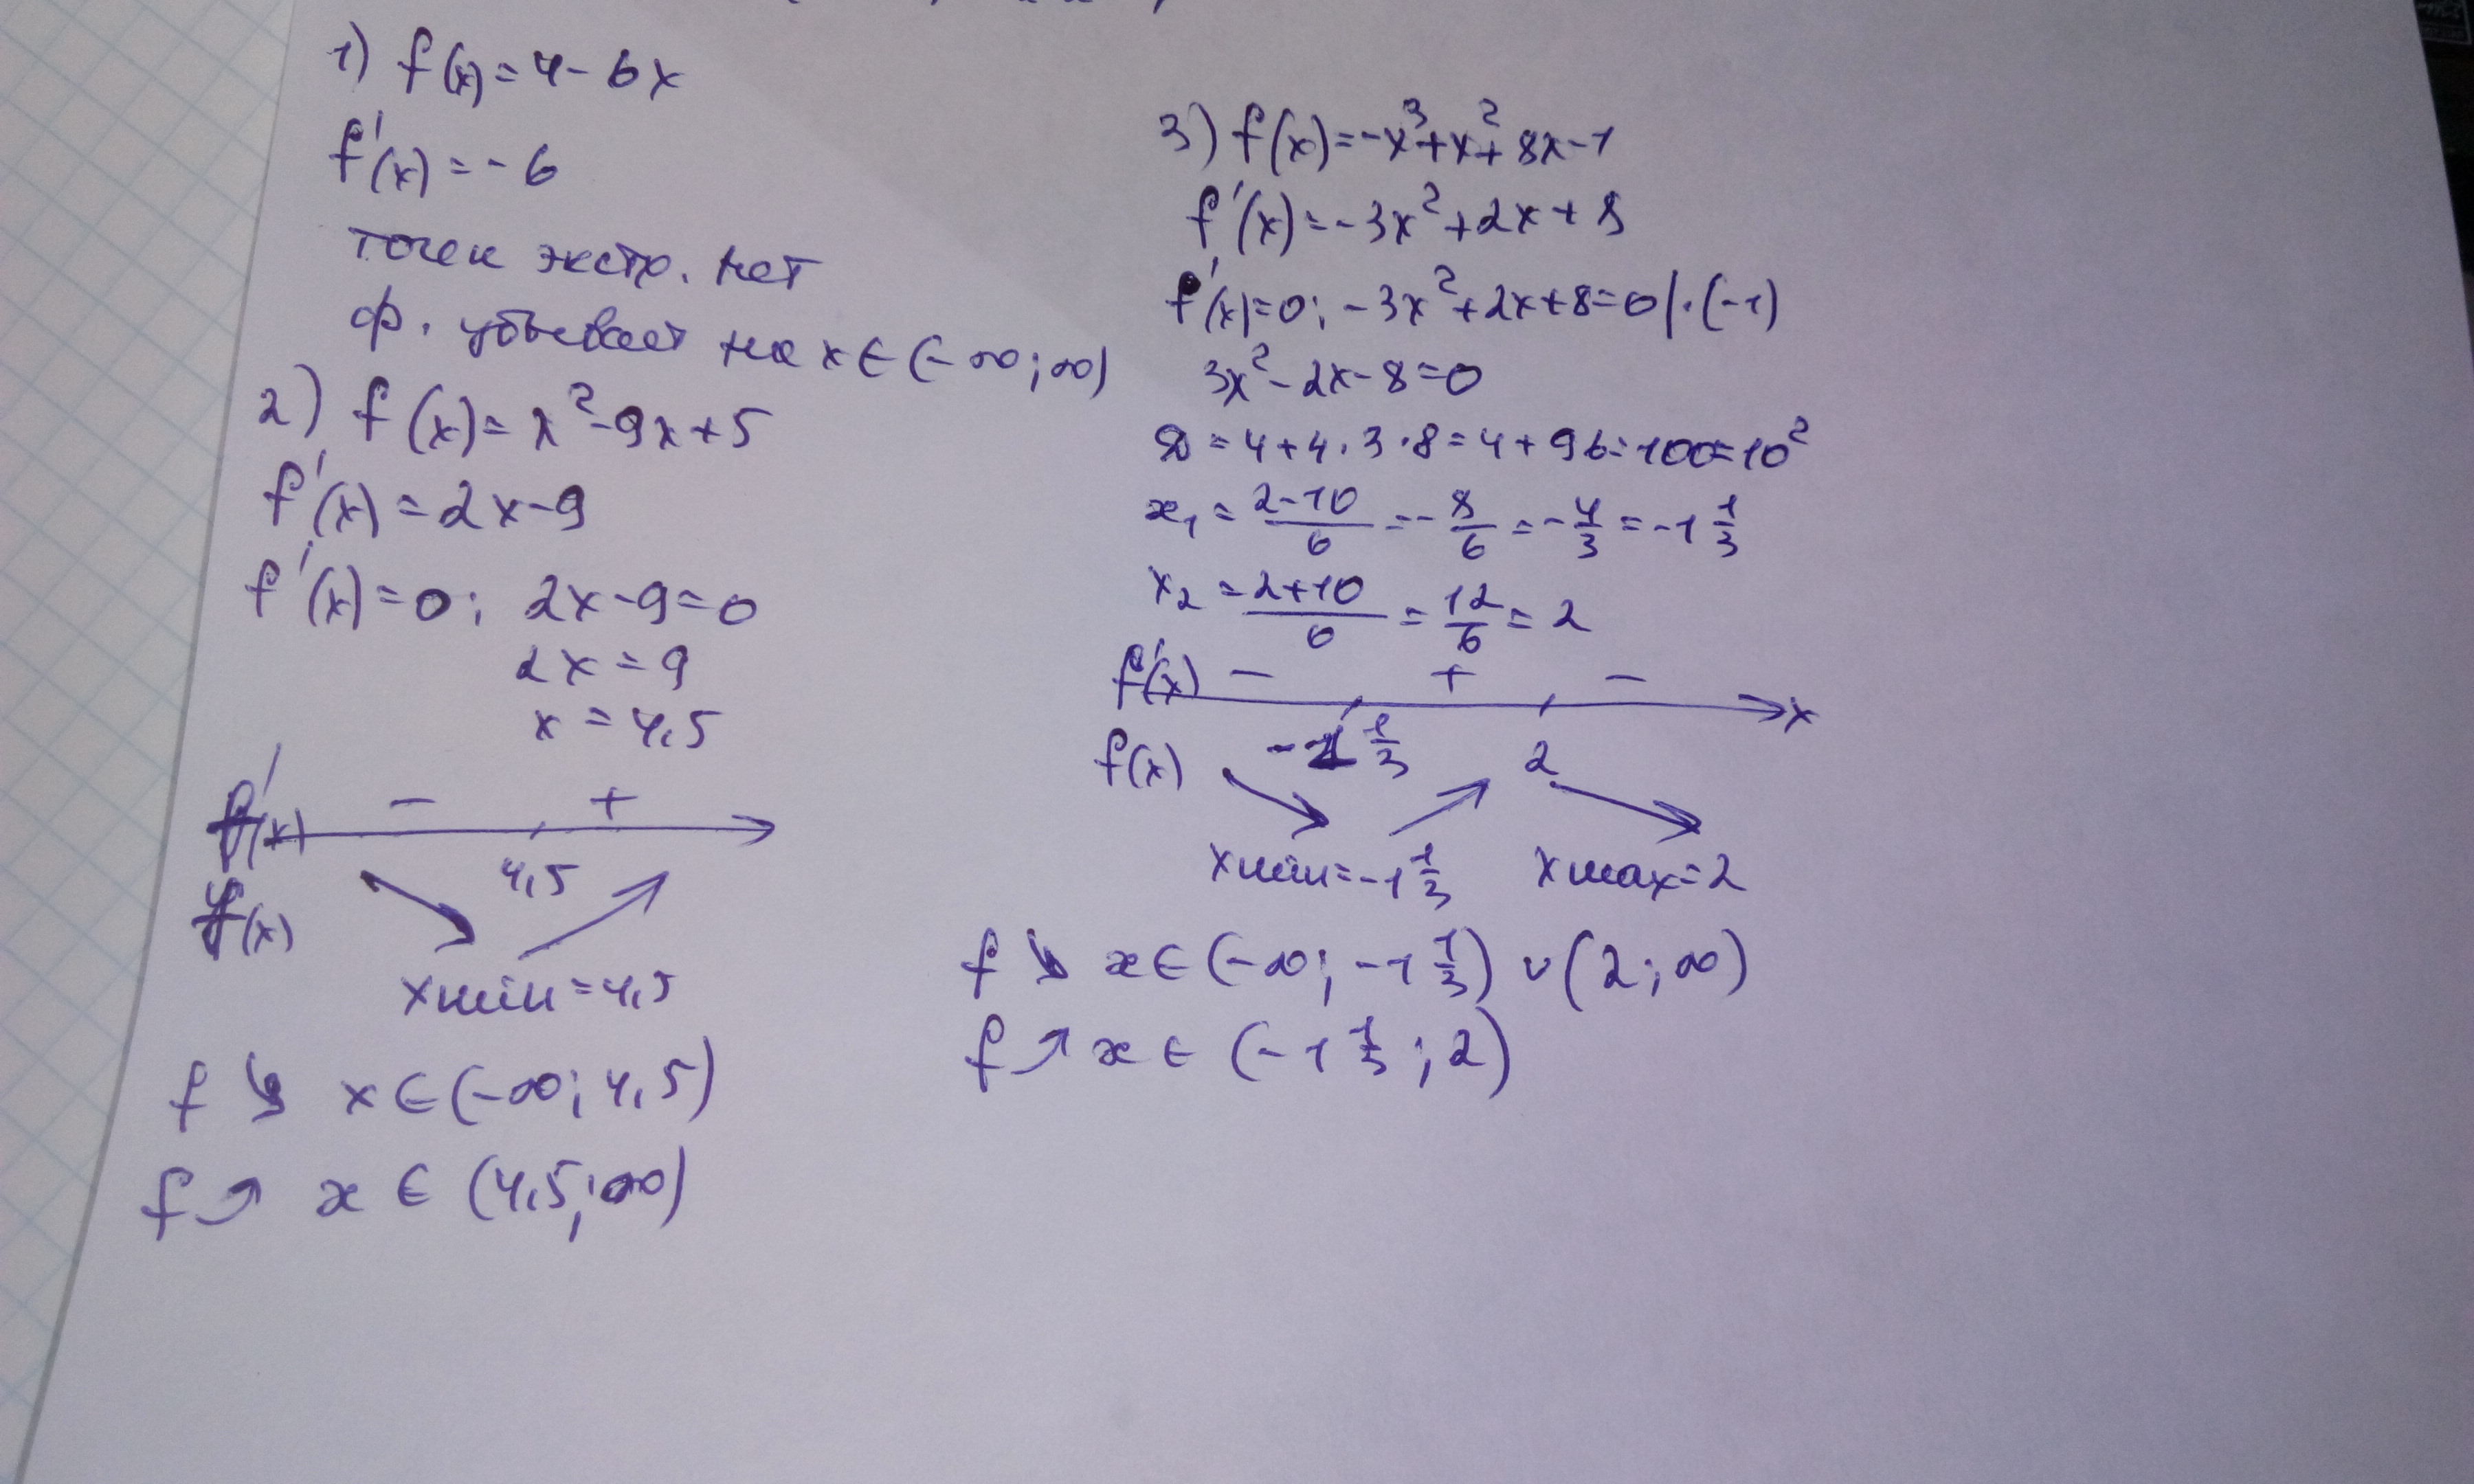 1) f(x)=4-6x
f'(x)=-6
точек экстр. нет
ф. убывает на x∈(-∞;∞)
2) f(x)=x²-9x+5
f'(x)=2x-9
f'(x)=0; 2x-9=0
2x=9
x=4,5
f'(x) - +
4,5
f(x)
xmin=4,5
f ↘ x∈(-∞; 4,5)
f ↗ x∈(4,5;∞)
3) f(x)=-x³+x²+8x-1
f'(x)=-3x²+2x+8
f'(x)=0; -3x²+2x+8=0|·(-1)
3x²-2x-8=0
D=4+4·3·8=4+96=100=10²
x₁=(2-10)/6=-8/6=-4/3=-1 1/3
x₂=(2+10)/6=12/6=2
f'(x) - + -
x
-1 1/3 2
f(x)
xmin=-1 1/3 xmax=2
f ↘ x∈(-∞; -1 1/3) ∪ (2; ∞)
f ↗ x∈(-1 1/3; 2)